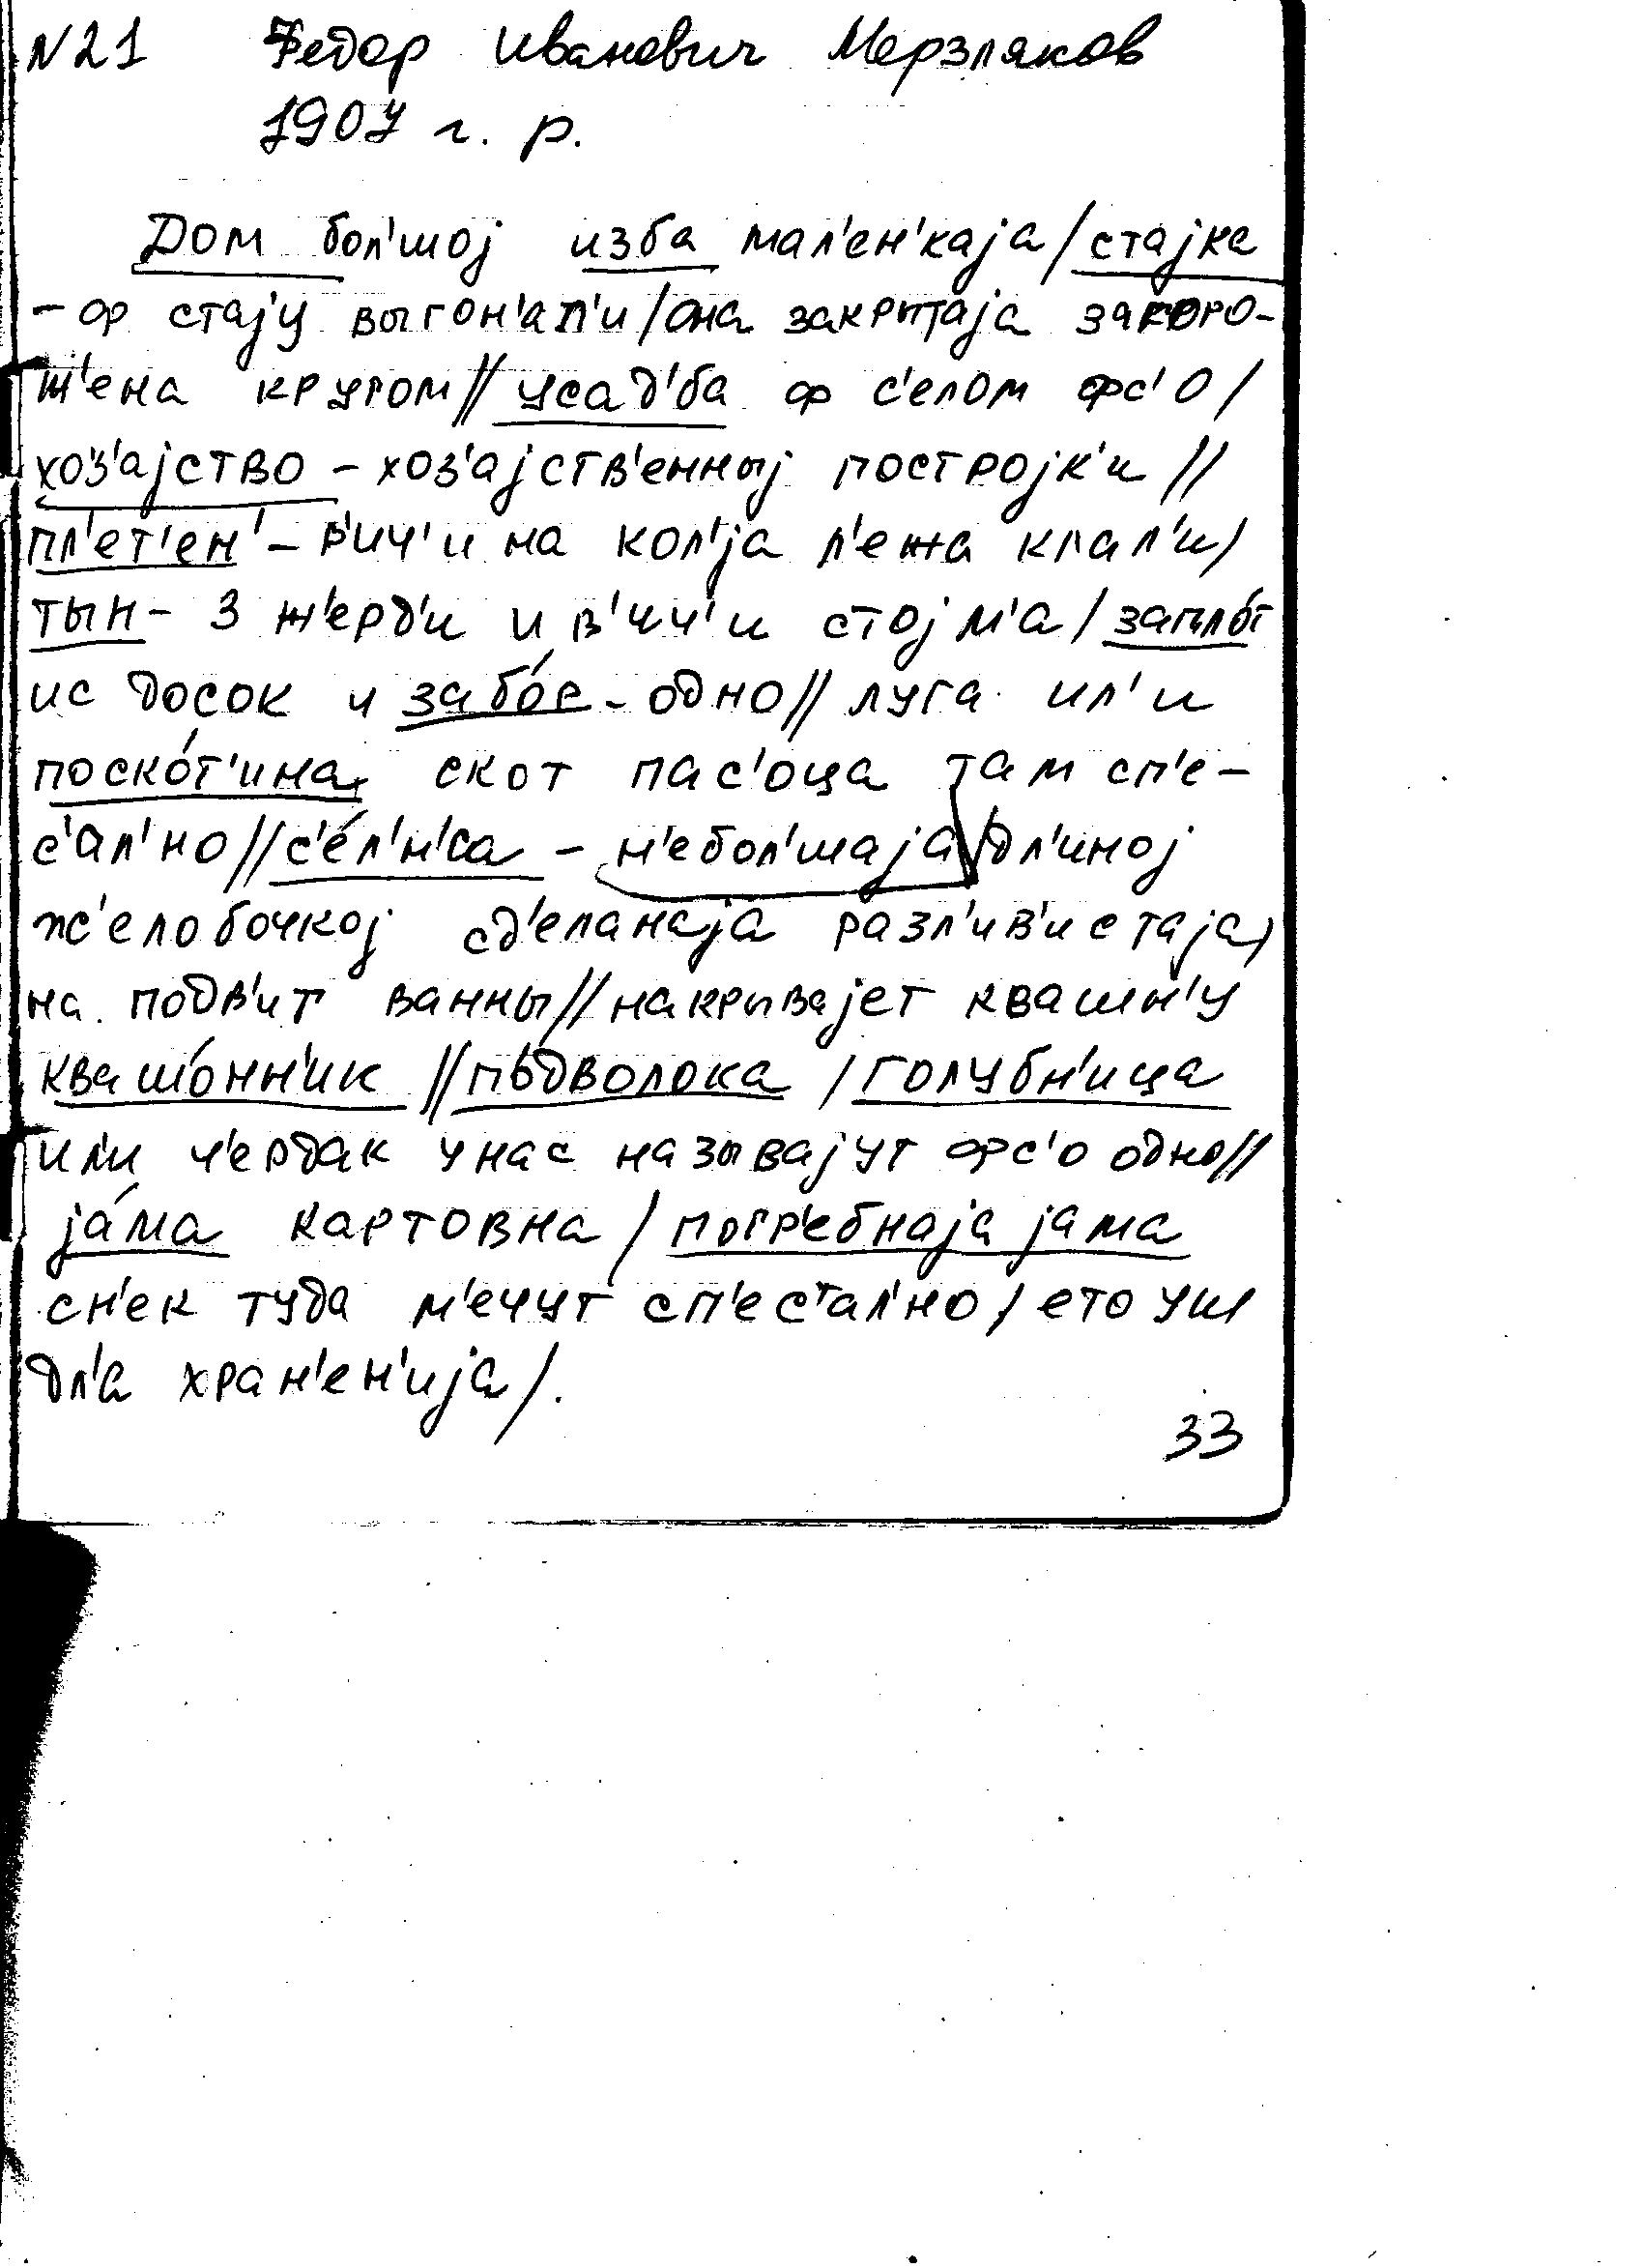 N21 Федор Иванович Мерзляков
1907 г. р.
Дом бол'шој изба мал'ен'каја/стајка
- ф стају выгон'ал'и/она закрытаја загоро-
ж'ена кругом//усад'ба ф с'елом фс'о/
хоз'ајство - хоз'ајств'енныј постројк'и//
пл'ет'ен' - в'ич'и на кол'ја л'ежа клал'и/
тын - 3 ж'ерд'и и в'ич'и стојм'а/запло́т
ис досок и забо́р - одно//луга ил'и
поско́т'ина, скот пас'оца там сп'е-
с'ал'но//с'е́л'н'са - н'ебол'шаја/дл'иной
ж'елобочкој сд'еланаја разл'ив'истаја/
на подв'ит ванны//накрывајет квашн'у
квашо́нн'ик //по́дволока /голубн'ица
ил'и ч'ердак у нас называјут фс'о одно//
ја́ма картовна/погр'ебнаја јама
сн'ек туда м'ечут сп'ес'ал'но/ето уш
дл'а хран'ен'ија/.
33